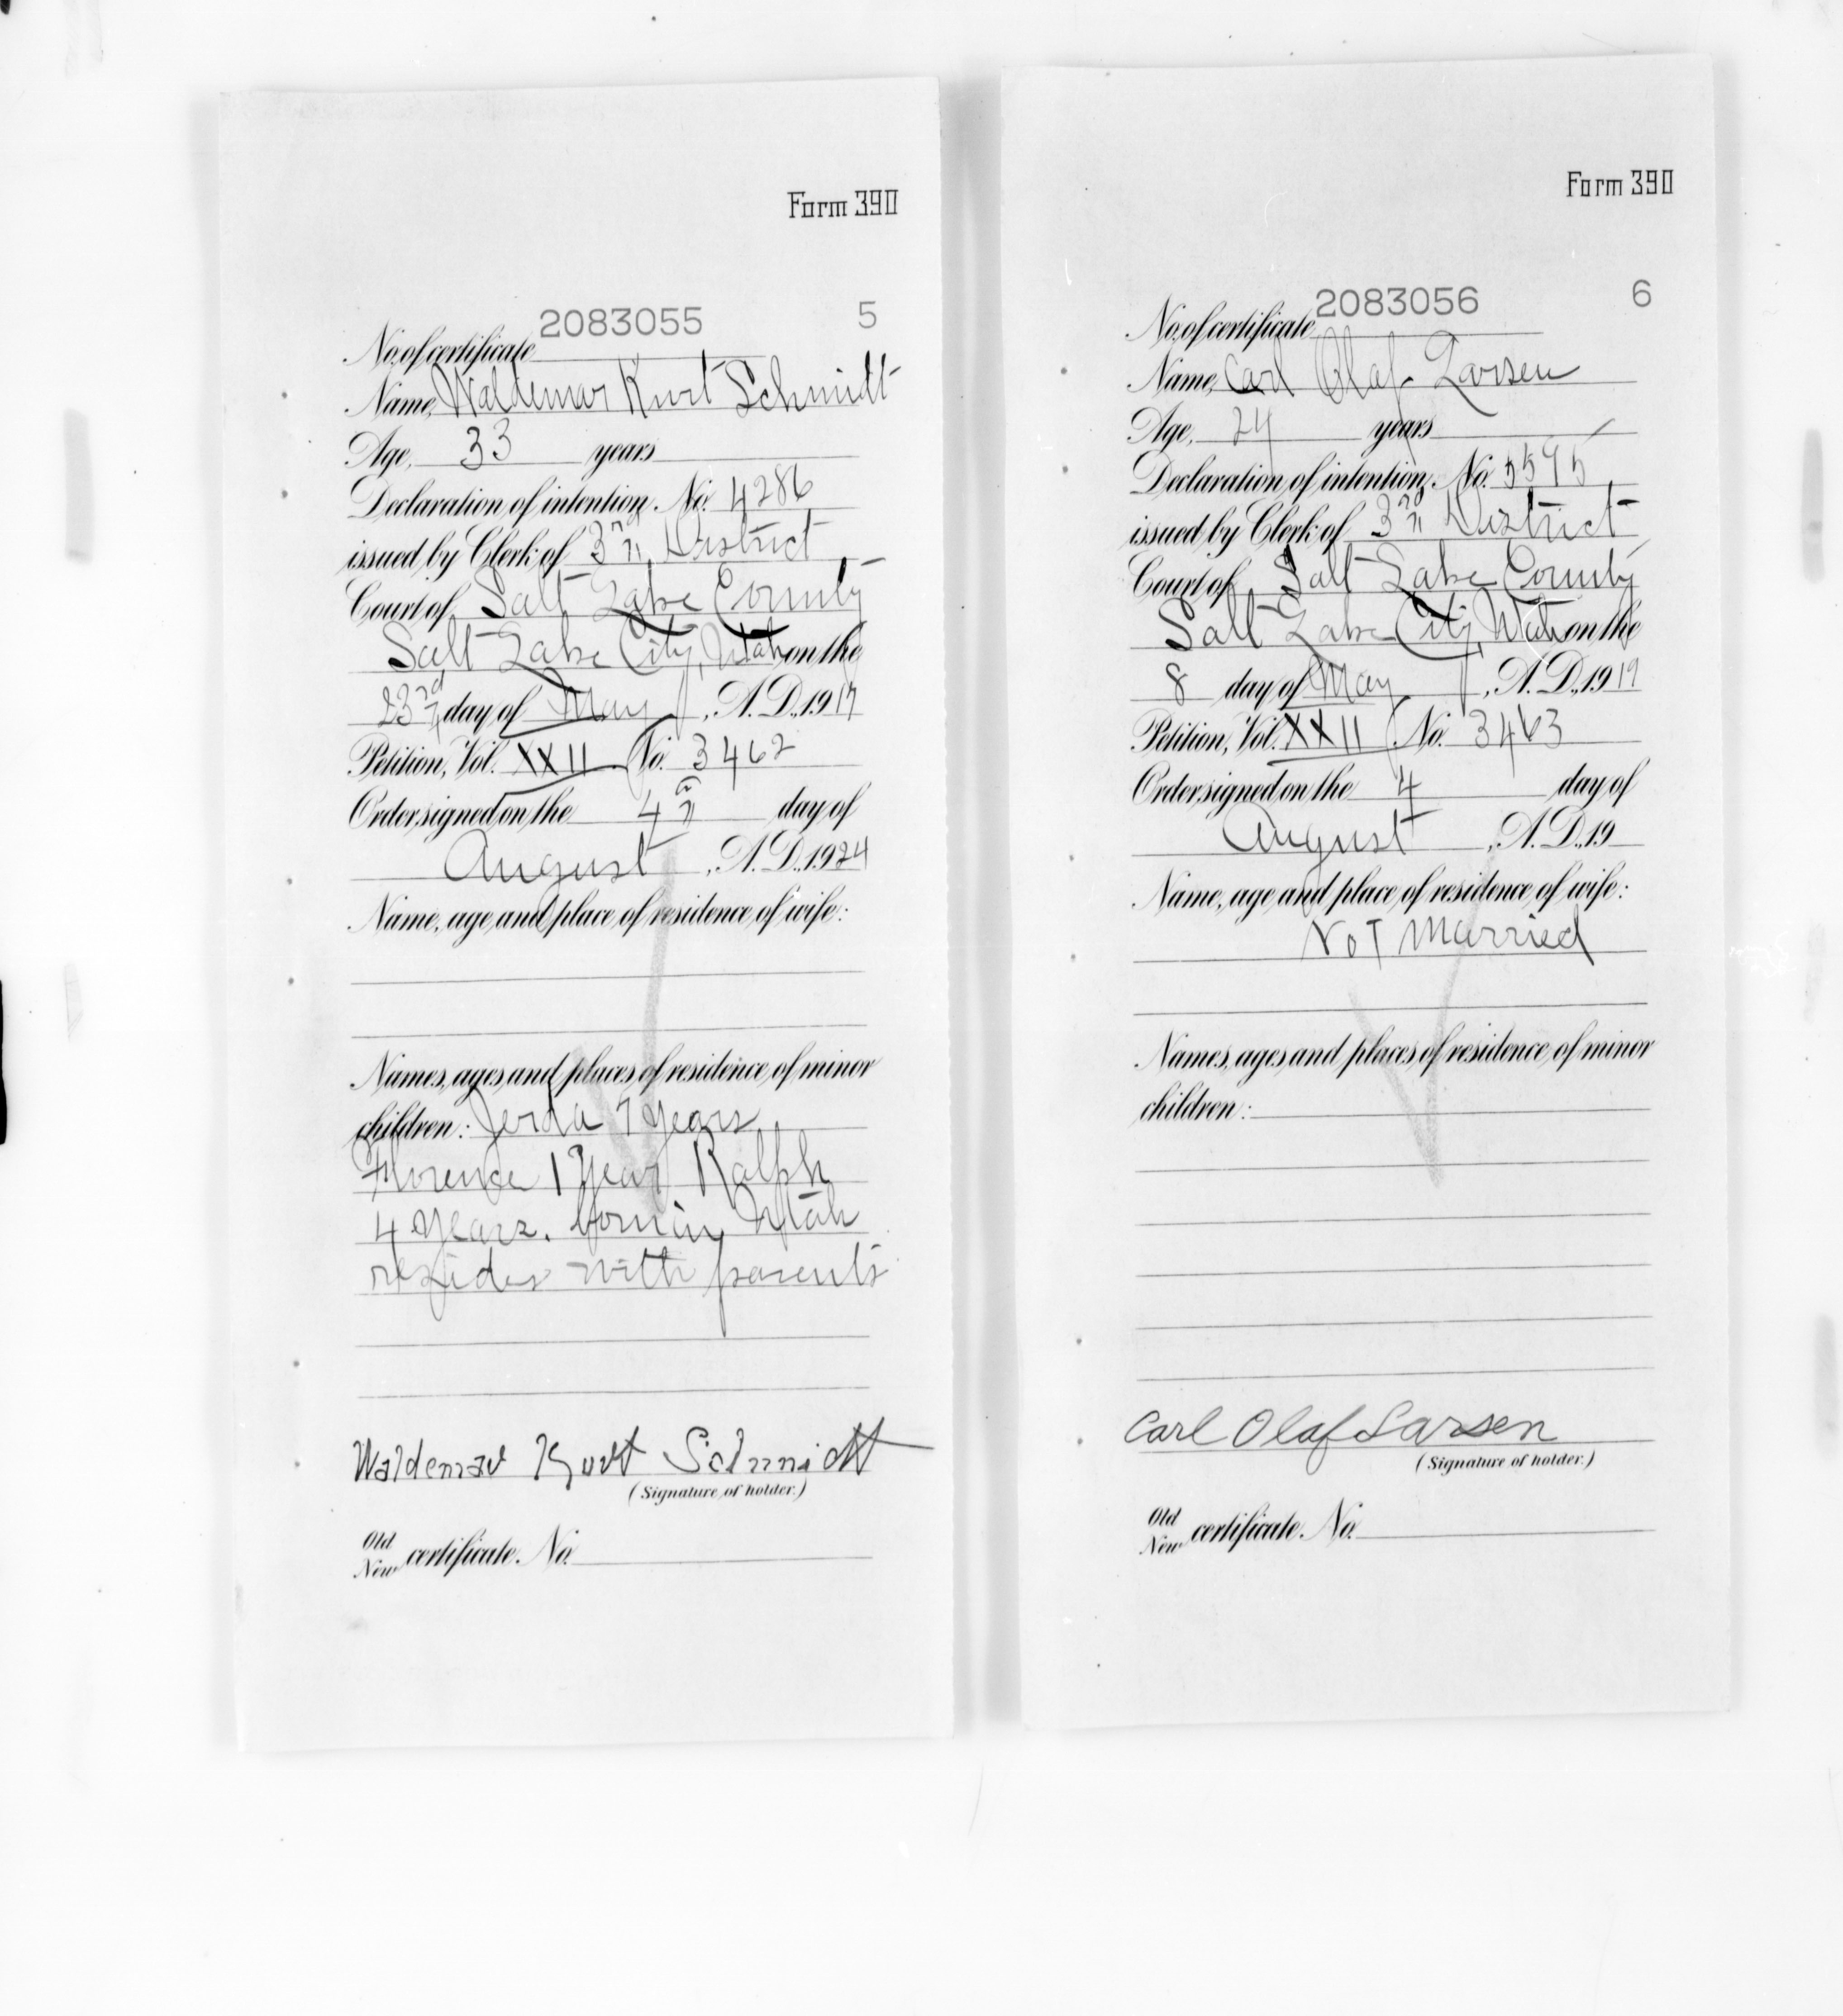 Form 390
2083055 5
No. of certificate
Name, Waldemar Kurt Schmidt
Age, 33 years
Declaration of intention, No. 4286
issued by Clerk of 3rd District
Court of Salt Lake County
Salt Lake City, Utah on the
23rd day of May, A. D., 1917
Petition, Vol. XXII No. 3462
Order signed on the 4th day of
August, A. D., 1924
Name, age and place of residence of wife:
Names, ages and places of residence of minor
children: Jerda 7 years
Florence 1 year Ralph
4 years. born in Utah
resides with parents
Waldemar Kurt Schmidt
(Signature of holder.)
Old
New certificate. No.
Form 390
2083056 6
No. of certificate
Name, Carl Olaf Larsen
Age, 24 years
Declaration of intention, No. 5595
issued by Clerk of 3rd District
Court of Salt Lake County
Salt Lake City, Utah on the
8 day of May, A. D., 1919
Petition, Vol. XXII No. 3463
Order signed on the 4 day of
August, A. D., 19
Name, age and place of residence of wife:
Not Married
Names, ages and places of residence of minor
children:
Carl Olaf Larsen
(Signature of holder.)
Old
New certificate. No.